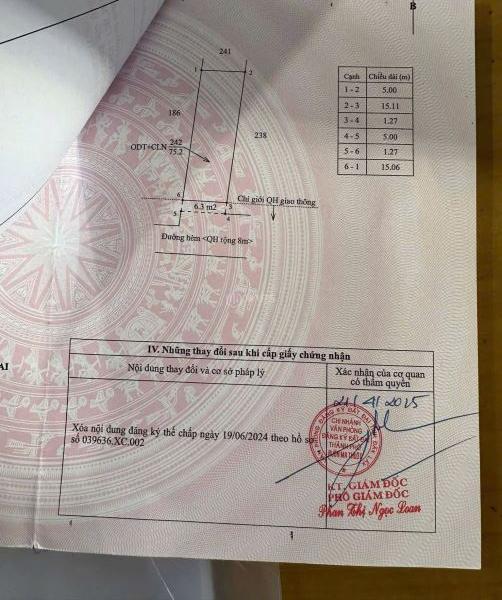 B
241
1
2
186
238
ODT+CLN 242
75.2
6
3
5
4
6.3 m2
Chỉ giới QH giao thông
Đường hẻm <QH rộng 8m>
Cạnh Chiều dài (m)
1 - 2 5.00
2 - 3 15.11
3 - 4 1.27
4 - 5 5.00
5 - 6 1.27
6 - 1 15.06
AI
IV. Những thay đổi sau khi cấp giấy chứng nhận
Nội dung thay đổi và cơ sở pháp lý
Xác nhận của cơ quan
có thẩm quyền
Xóa nội dung đăng ký thế chấp ngày 19/06/2024 theo hồ sơ
số 039636.XC.002
CHI NHÁNH
VĂN PHÒNG
ĐĂNG KÝ ĐẤT ĐAI
THÀNH PHỐ
KT. GIÁM ĐỐC
PHÓ GIÁM ĐỐC
Phan Thị Ngọc Loan